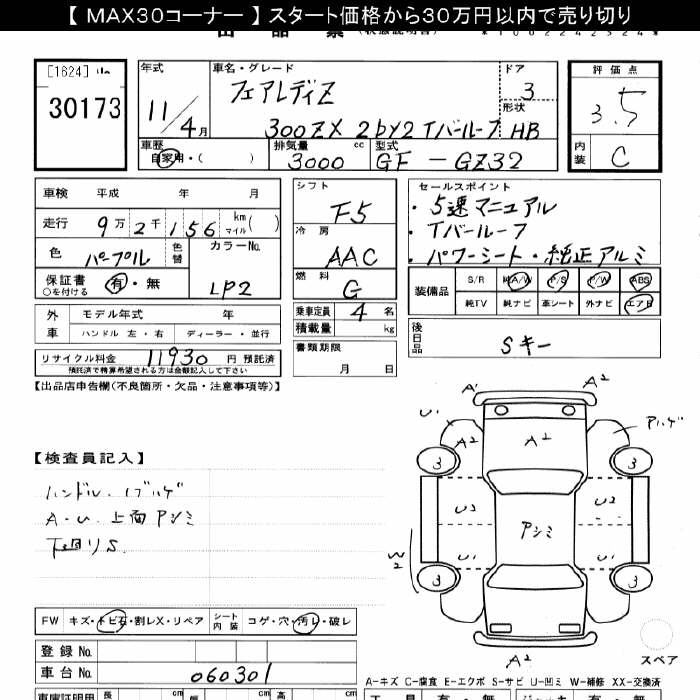 【 MAX30コーナー 】 スタート価格から30万円以内で売り切り
[1624]
30173
年式
11/4月
車名・グレード
フェアレディZ
300ZX 2by2 Tバールーフ
ドア
3
形状
HB
評価点
3.5
内装
C
車歴
自家用・( )
排気量
3000 cc
型式
GF-GZ32
車検 平成 年 月
走行 9万2千156 km マイル( )
色 パープル 色替
カラーNo.
LP2
保証書 有・無
○を付ける
シフト
F5
冷房
AAC
燃料
G
乗車定員 4 名
積載量 kg
書類期限
月 日
セールスポイント
・5速マニュアル
・Tバールーフ
・パワーシート・純正アルミ
装備品
S/R 純A/W P/S P/W ABS
純TV 純ナビ 革シート 外ナビ エアB
後日品
Sキー
外車
モデル年式 年
ハンドル 左・右 ディーラー・並行
リサイクル料金 11930 円 預託済
預託済で精算希望される方は金額記入して下さい
【出品店申告欄(不良箇所・欠品・注意事項等)】
【検査員記入】
A・U 上面Pシミ
下廻りS
A1
A2
U1
A2
A2
Pハゲ
3
3
U2
U2
Pシミ
W2
U1
U1
3
3
A2
スペア
FW キズ・トビ石・割レX・リペア シート内装 コゲ・穴・汚レ・破レ
登録No.
車台No. 060301
A-キズ C-腐食 E-エクボ S-サビ U-凹ミ W-補修 XX-交換済